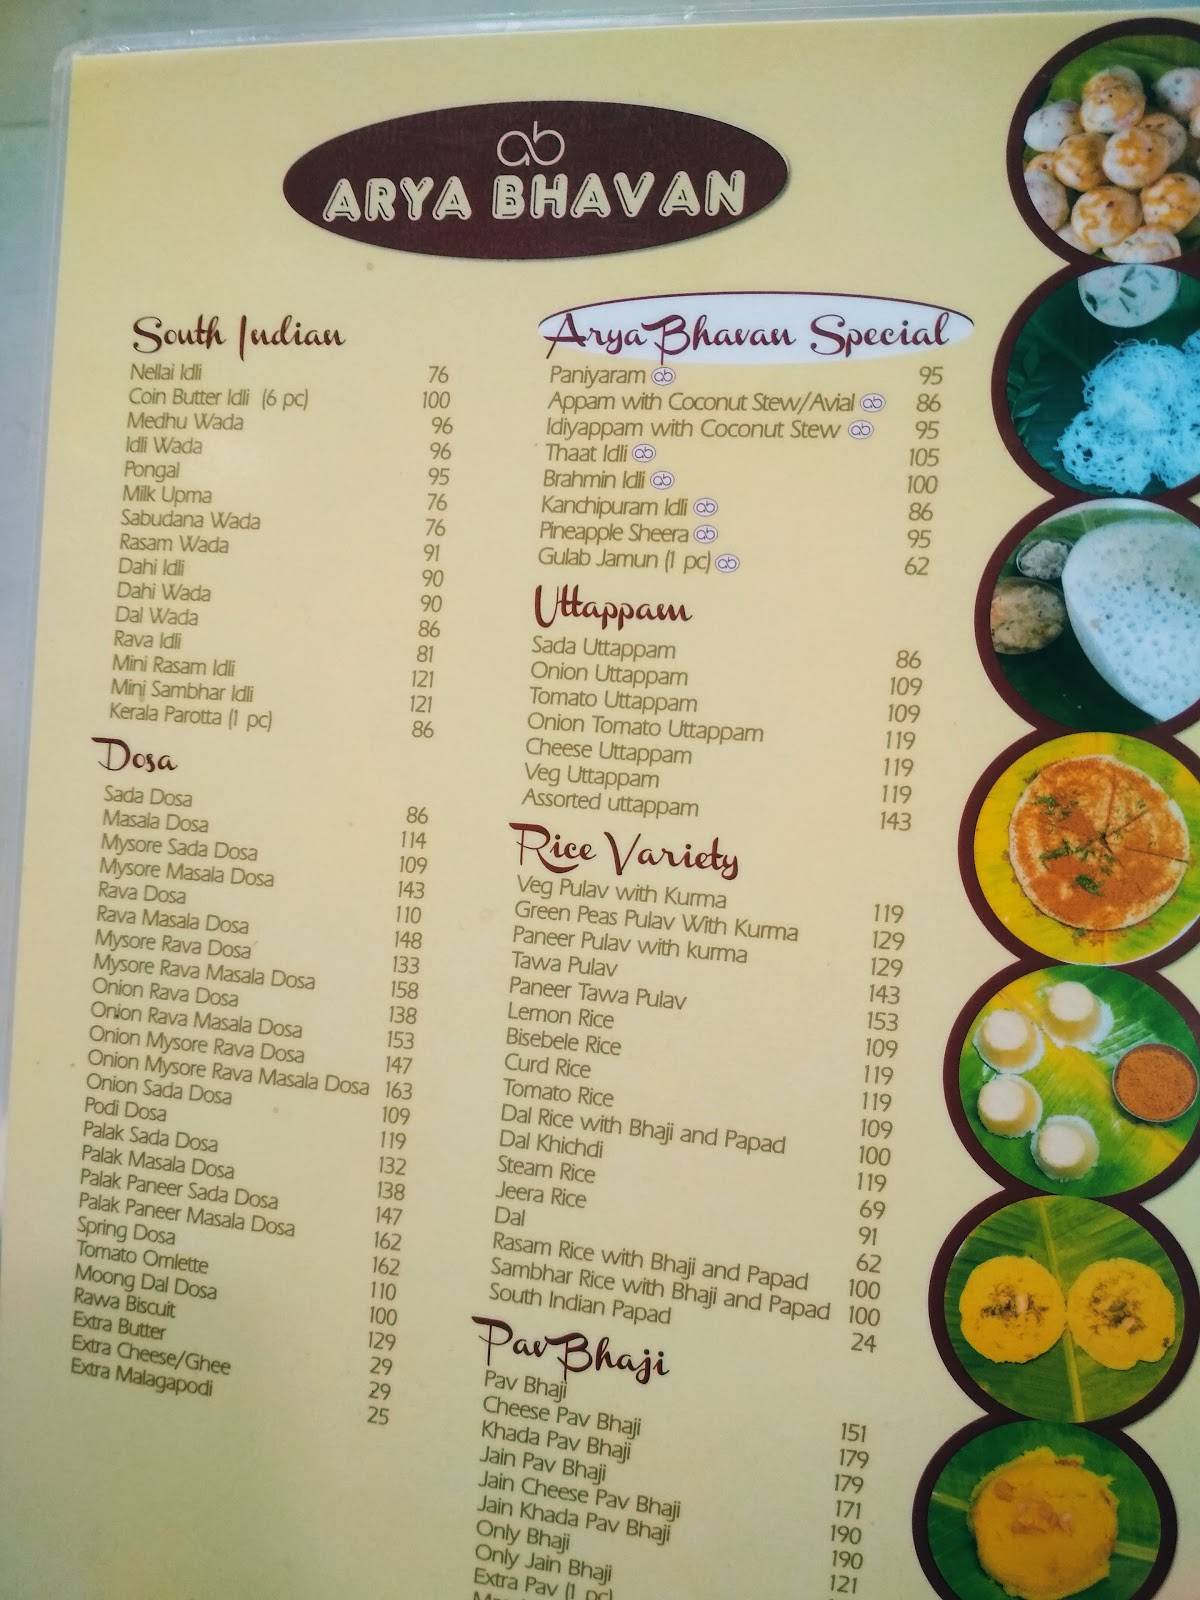 ab
ARYA BHAVAN
South Indian
Nellai Idli 76
Coin Butter Idli (6 pc) 100
Medhu Wada 96
Idli Wada 96
Pongal 95
Milk Upma 76
Sabudana Wada 76
Rasam Wada 91
Dahi Idli 90
Dahi Wada 90
Dal Wada 86
Rava Idli 81
Mini Rasam Idli 121
Mini Sambhar Idli 121
Kerala Parotta (1 pc) 86
Dosa
Sada Dosa 86
Masala Dosa 114
Mysore Sada Dosa 109
Mysore Masala Dosa 143
Rava Dosa 110
Rava Masala Dosa 148
Mysore Rava Dosa 133
Mysore Rava Masala Dosa 158
Onion Rava Dosa 138
Onion Rava Masala Dosa 153
Onion Mysore Rava Dosa 147
Onion Mysore Rava Masala Dosa 163
Onion Sada Dosa 109
Podi Dosa 119
Palak Sada Dosa 132
Palak Masala Dosa 138
Palak Paneer Sada Dosa 147
Palak Paneer Masala Dosa 162
Spring Dosa 162
Tomato Omlette 110
Moong Dal Dosa 100
Rawa Biscuit 129
Extra Butter 29
Extra Cheese/Ghee 29
Extra Malagapodi 25
Arya Bhavan Special
Paniyaram ab 95
Appam with Coconut Stew/Avial ab 86
Idiyappam with Coconut Stew ab 95
Thaat Idli ab 105
Brahmin Idli ab 100
Kanchipuram Idli ab 86
Pineapple Sheera ab 95
Gulab Jamun (1 pc) ab 62
Uttappam
Sada Uttappam 86
Onion Uttappam 109
Tomato Uttappam 109
Onion Tomato Uttappam 119
Cheese Uttappam 119
Veg Uttappam 119
Assorted uttappam 143
Rice Variety
Veg Pulav with Kurma 119
Green Peas Pulav With Kurma 129
Paneer Pulav with kurma 129
Tawa Pulav 143
Paneer Tawa Pulav 153
Lemon Rice 109
Bisebele Rice 119
Curd Rice 119
Tomato Rice 109
Dal Rice with Bhaji and Papad 100
Dal Khichdi 119
Steam Rice 69
Jeera Rice 91
Dal 62
Rasam Rice with Bhaji and Papad 100
Sambhar Rice with Bhaji and Papad 100
South Indian Papad 24
Pav Bhaji
Pav Bhaji 151
Cheese Pav Bhaji 179
Khada Pav Bhaji 179
Jain Pav Bhaji 171
Jain Cheese Pav Bhaji 190
Jain Khada Pav Bhaji 190
Only Bhaji 121
Only Jain Bhaji
Extra Pav (1 pc)